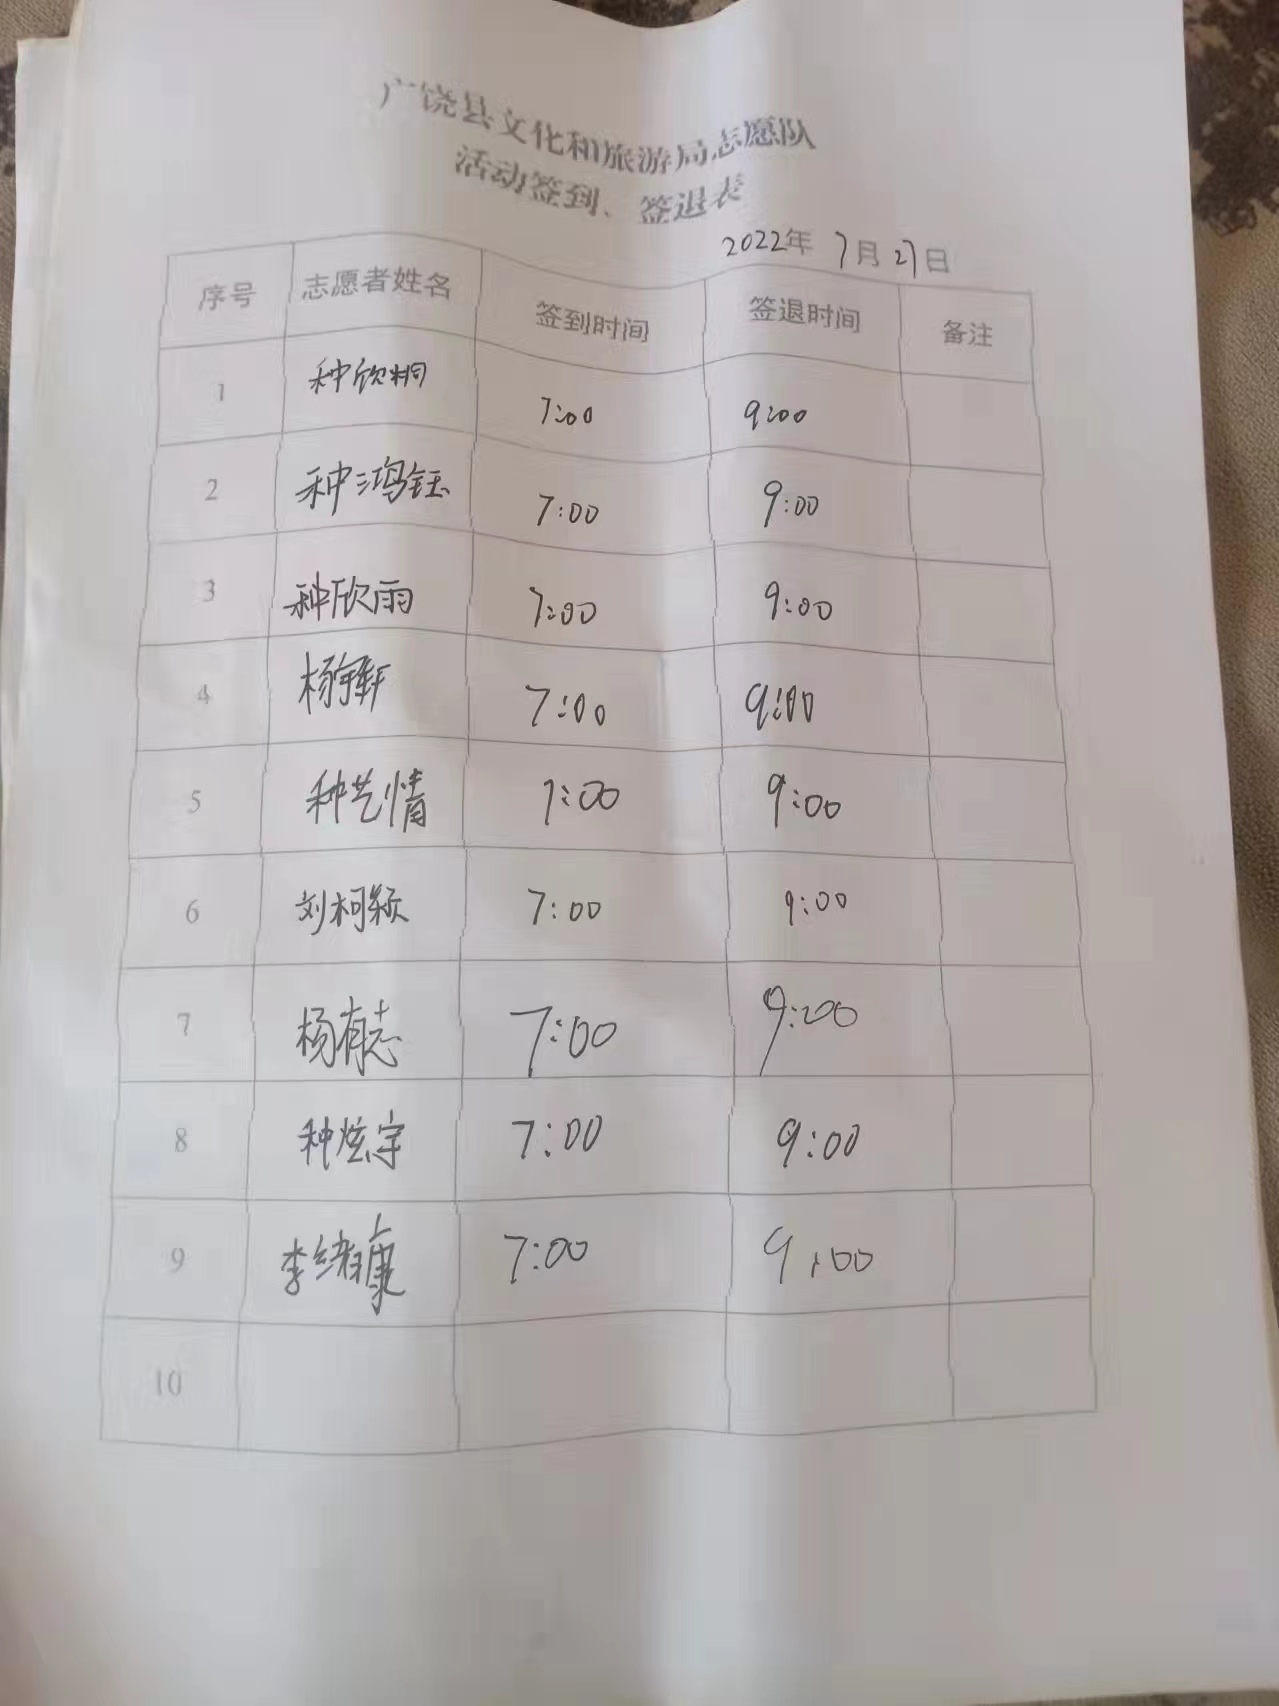 广饶县文化和旅游局志愿队
活动签到、签退表
2022年 7月27日
序号 志愿者姓名 签到时间 签退时间 备注
1 种欣桐 7:00 9:00
2 种鸿钰 7:00 9:00
3 种欣雨 7:00 9:00
4 杨宇轩 7:00 9:00
5 种艺情 7:00 9:00
6 刘柯颖 7:00 9:00
7 杨有志 7:00 9:00
8 种炫宇 7:00 9:00
9 李绪康 7:00 9:00
10